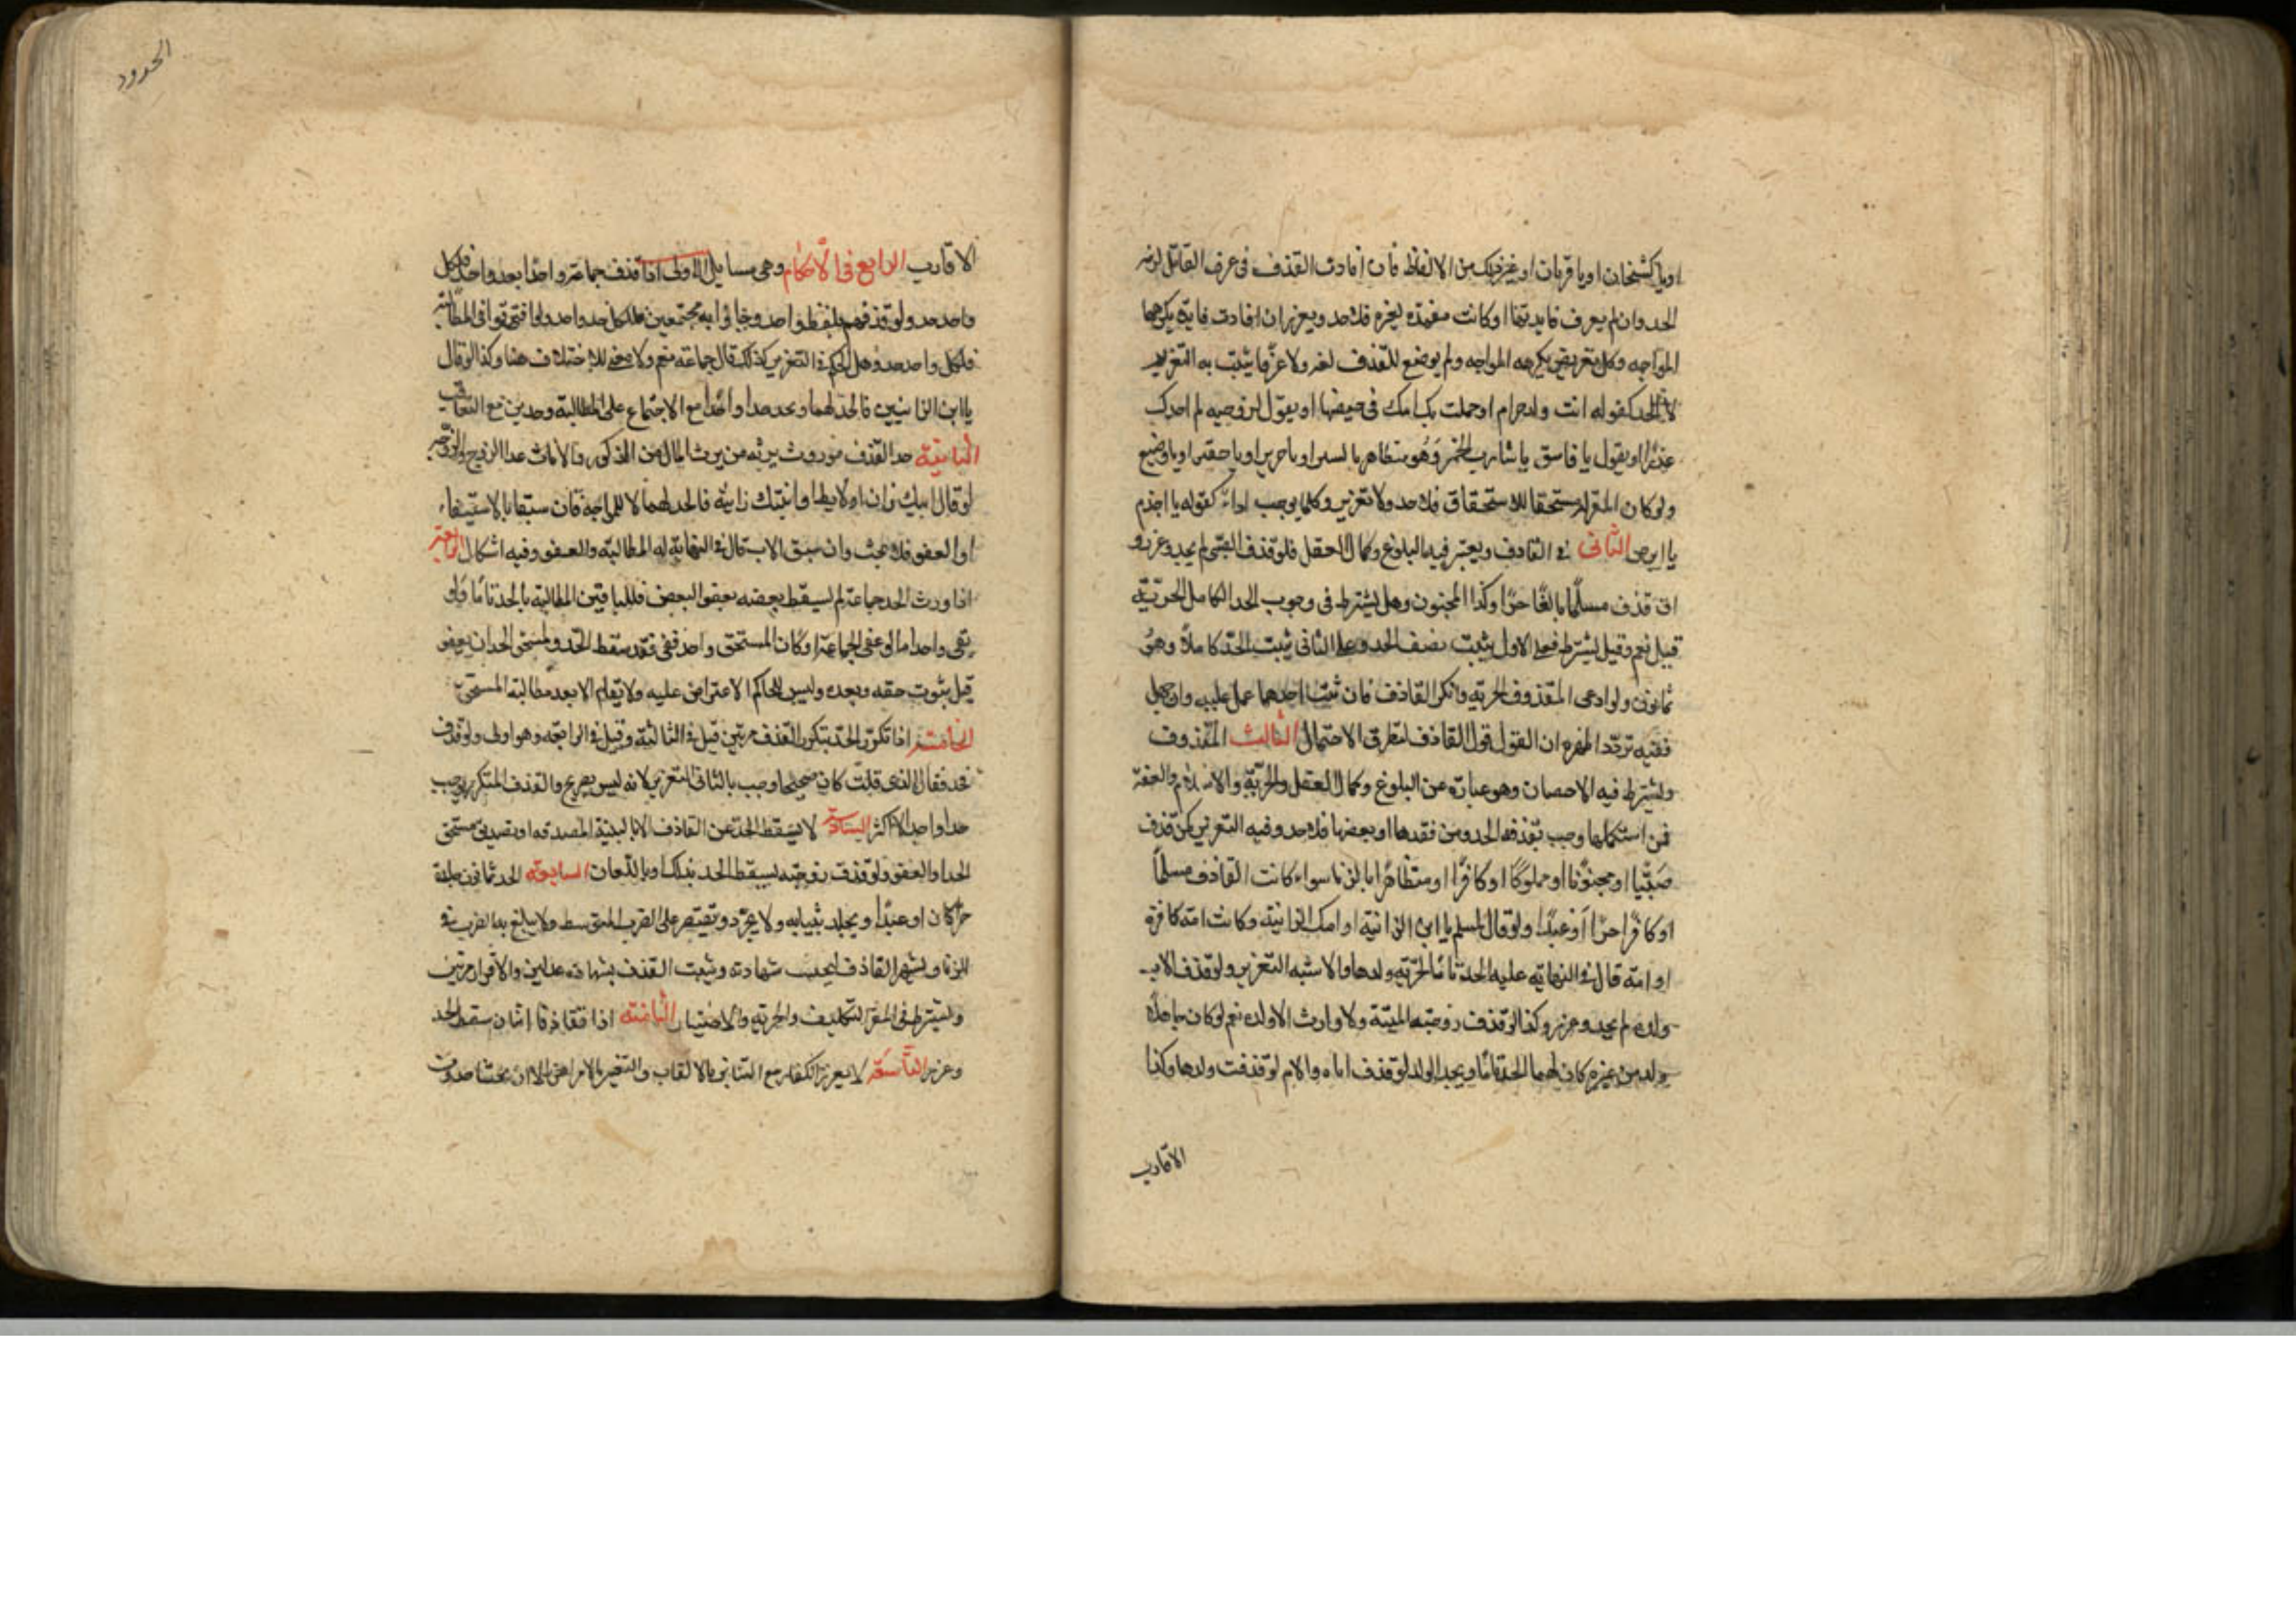 او يا كشخان او يا قرنان او غير ذلك من الالفاظ فان افادت القذف فى عرف القائل لزمه
الحد وان لم يعرف فايدتها او كانت مفيدة لغيره فلا حد ويعزر ان افادت فايدة يكرهها
المواجه وكل تعريض يكرهه المواجه ولم يوضع للقذف لغة ولا عرفا يثبت به التعزير
لا الحد كقوله انت ولد حرام او حملت بك امك فى حيضها او يقول لزوجته لم اجدك
عذرا او يقول يا فاسق يا شارب الخمر وهو متظاهر بالستر او يا خنزير او يا حقير او يا وضيع
ولو كان المقول له مستحقا للاستخفاف فلا حد ولا تعزير وكلما يوجب اذاء كقوله يا اجذم
يا ابرص الثانى فى القاذف ويعتبر فيه البلوغ وكمال العقل فلو قذف الصبى لم يحد وعزر و
ان قذف مسلما بالغا حرا وكذا المجنون وهل يشترط فى وجوب الحد الكامل الحرية
قيل نعم وقيل لا يشترط فعلى الاول يثبت نصف الحد وعلى الثانى يثبت الحد كاملا وهو
ثمانون ولو ادعى المقذوف الحرية وانكر القاذف فان ثبت احدهما عمل عليه وان جهل
ففيه تردد اظهره ان القول قول القاذف لتطرق الاحتمال الثالث المقذوف
ويشترط فيه الاحصان وهو عبارة عن البلوغ وكمال العقل والحرية والاسلام والعفة
فمن استكملها وجب بقذفه الحد ومن فقدها او بعضها فلا حد وفيه التعزير كمن قذف
صبيا او مجنونا او مملوكا او كافرا او متظاهرا بالزنا سواء كانت القاذف مسلما
او كافرا حرا او عبدا ولو قال لمسلم يا ابن الزانية او امك الزانية وكانت امه كافرة
او امة قال فى النهاية عليه الحد تاما لحرمة ولدها والاشبه التعزير ولو قذف الاب
ولده لم يحد وعزر وكذا لو قذف زوجته الميتة ولا وارث الا ولده نعم لو كان لها ولد
ولد من غيره كان لهما الحد تاما ويحد الولد لو قذف اباه والام لو قذفت ولدها وكذا
الاقارب
الحدود
الاقارب الرابع فى الاحكام وهى مسايل الاولى اذا قذف جماعة واحدا بعد واحد فلكل
واحد حد ولو قذفهم بلفظ واحد وجاؤا به مجتمعين فلكل حد واحد ولو افترقوا فى المطالبة
فلكل واحد حد وهل الحكم فى التعزير كذلك قال جماعة نعم ولا معنى للاختلاف هنا وكذا لو قال
يا ابن الزانيين فالحد لهما ويحد حدا واحدا مع الاجتماع على المطالبة وحدين مع التعاقب
الثانية حد القذف موروث يرثه من يرث المال من الذكور والاناث عدا الزوج والزوجة
لو قال ابنك زان او لايط او ابنتك زانية فالحد لهما لا للمواجه فان سبقا بالاستيفاء
او العفو فلا بحث وان سبق الاب قال فى النهاية له المطالبة والعفو وفيه اشكال الرابعة
اذا ورث الحد جماعة لم يسقط بعضه بعفو البعض فللباقين المطالبة بالحد تاما ولو
بقى واحد اما لو عفى الجماعة او كان المستحق واحد فعفى فقد سقط الحد ولمستحق الحد ان يعفو
قبل ثبوت حقه وبعده وليس للحاكم الاعتراض عليه ولا يقام الا بعد مطالبة المستحق
الخامسة اذا تكرر الحد بتكرر القذف مرتين قتل فى الثالثة وقيل فى الرابعة وهو اولى ولو قذف
فحد فقال الذى قلت كان صحيحا وجب بالثانى التعزير لانه ليس بصريح والقذف المتكرر يوجب
حدا واحدا لا اكثر السادسة لا يسقط الحد عن القاذف الا بالبينة المصدقة او تصديق مستحق
الحد او العفو ولو قذف زوجته يسقط الحد بذلك او باللعان السابعة الحد ثمانون جلدة
حرا كان او عبدا ويجلد بثيابه ولا يجرد ويقتصر على الضرب المتوسط ولا يبلغ به الضرب فى
الزنا ويشهر القاذف ليجتنب شهادته ويثبت القذف بشهادة عدلين والاقرار مرتين
ويشترط فى المقر التكليف والحرية والاختيار الثامنة اذا تقاذف اثنان سقط الحد
وعزر التاسعة لا يعزر الكفار مع التنابز بالالقاب والتعيير بالامراض الا ان يخشى حدوث